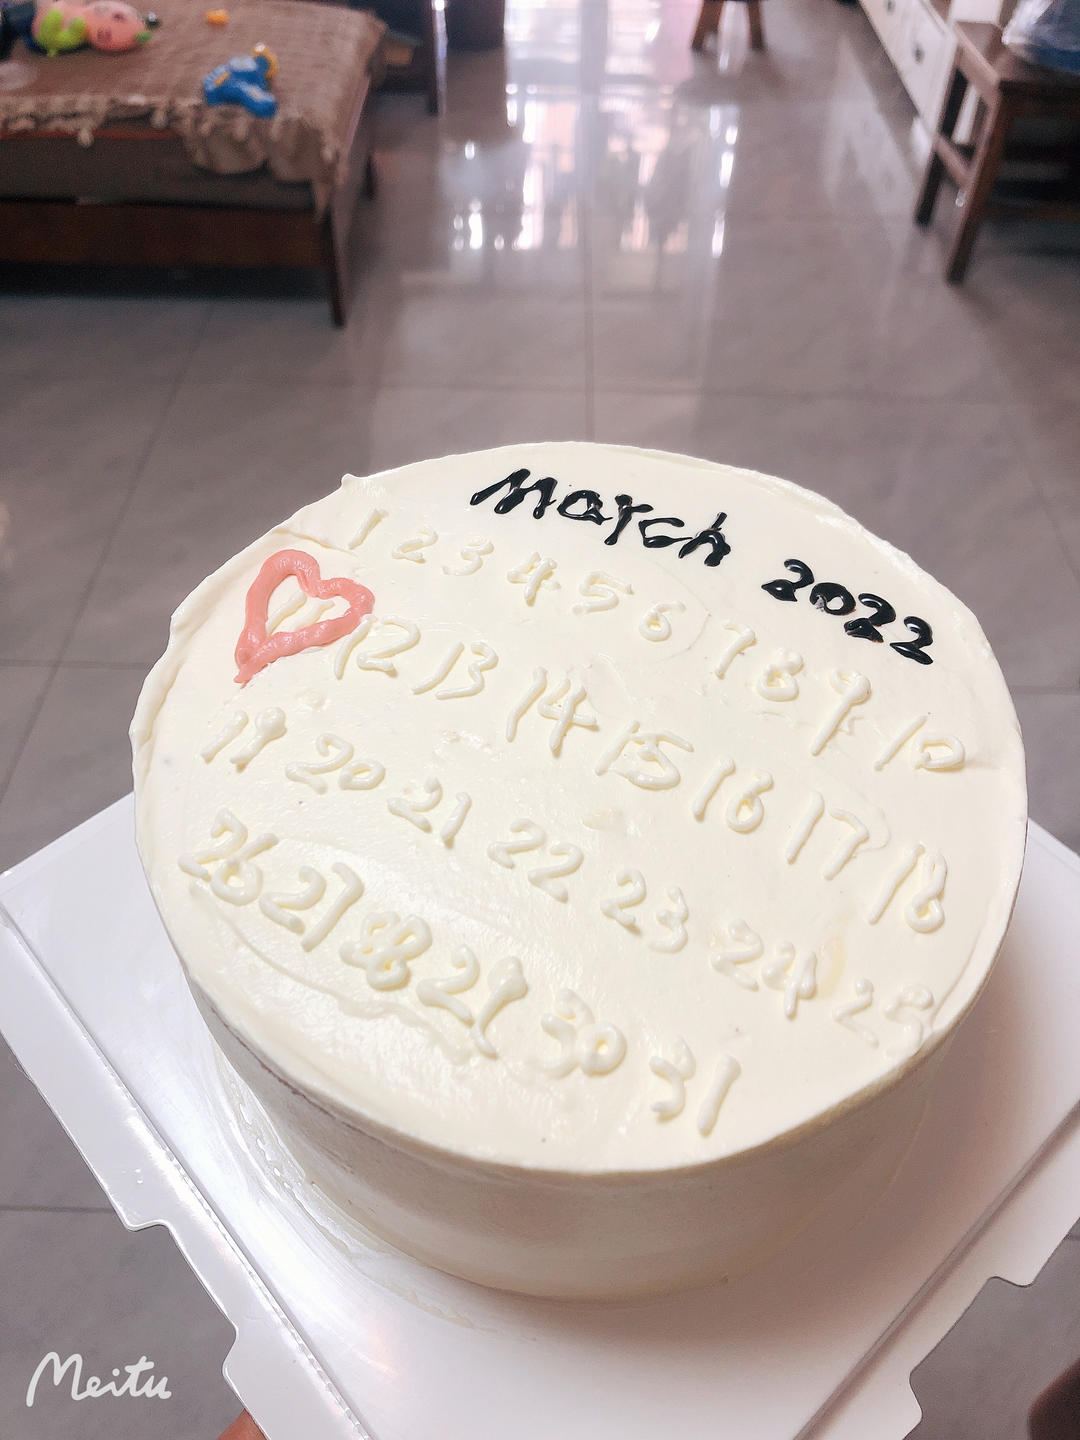 March 2022
1 2 3 4 5 6 7 8 9 10
11 12 13 14 15 16 17 18
19 20 21 22 23 24 25
26 27 28 29 30 31
Meitu